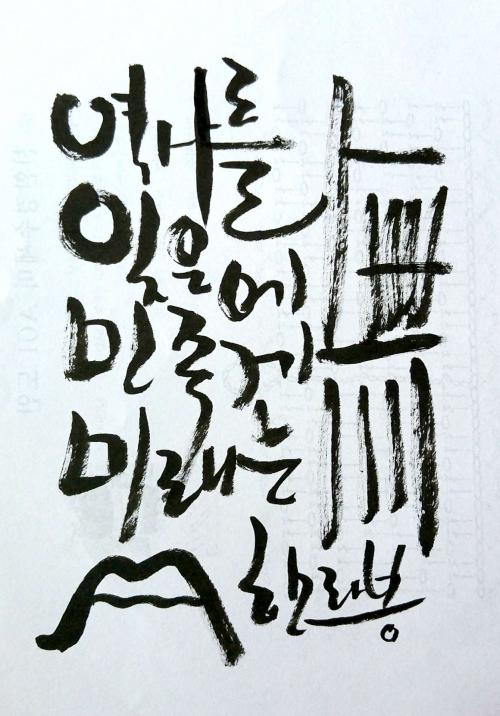 역사를
잊은
민족에게
미래는
無
한라봉